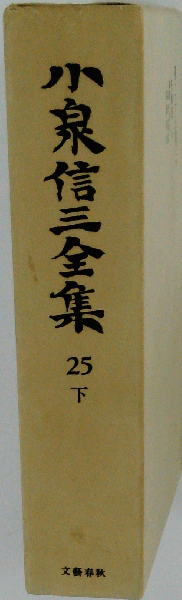 小泉信三全集
25
下
文藝春秋